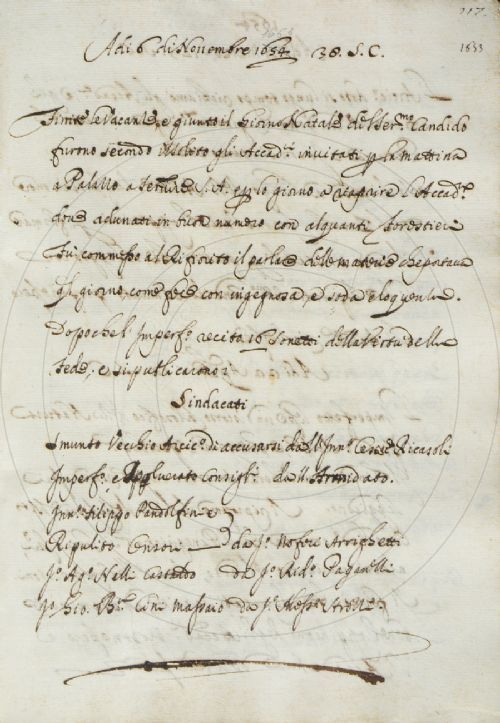 217.
1653
Adi 6 di Novembre 1654. 38. S. C.
Finite le Vacanze, e giunto il Giorno Natale del Ser.mo Candido
furono secondo il solito gli Accad.ci invitati p la mattina
a Palazzo a S. A. e p lo giorno a l'Accad.a
dove adunati in buon numero con alquanti forestieri
fu commesso al Rifiorito il parlare delle materie che portava
il giorno, come fece con ingegnosa, e soda eloquenza.
Dopo che l'Imperf.o recitò 16 Sonetti della Virtù della
fede; e si publicarono i
Sindacati
Smunto Vecchio Arcic.o di accusarsi da Inn.o Ricasoli
Imperf.o, e Consigl.i da Arrondato.
Inn.o Filippo Pandolfini e
Ripulito Censori da J.o Nofere Arrighetti
J.o Ag.o Nelli Castaldo da J.o Rid.o Paganelli
J.o Gio. B.a Cini Massaio da J.o